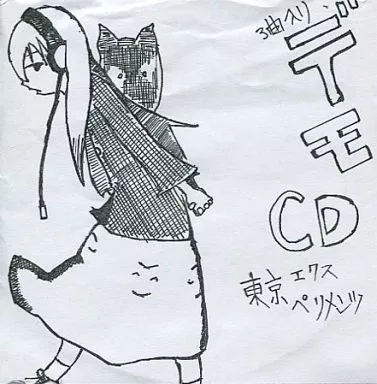 3曲入り
デモ
CD
東京エクス
ペリメンツ